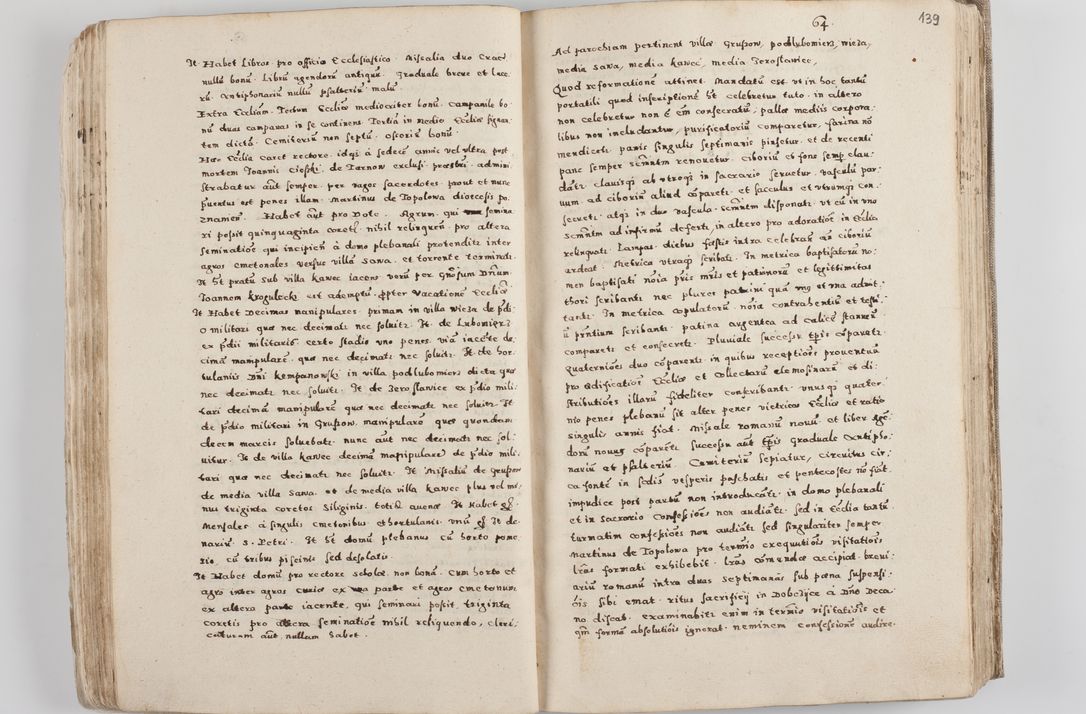 It Habet Libros pro officio Ecclesiastico. Missalia duo Crac:
nullũ bonũ. Librũ agendorũ antiquũ. Graduale breve et lace
rũ. Antiphonariũ nullũ psalteriũ malũ.
Extra Eccliam. Tectum Eccliæ mediocriter bonũ. campanile bo
nũ duas campanas in se continens. Tertiã in medio Eccliæ signa:
tem dictã. Cemiteriũ non septũ. Ossoriũ bonũ.
Hæc Ecclia caret rectore. idq; à sedecẽ annis vel ultra post
mortem Joannis de Tarnow admini
strabatur aũt semper. per vagos sacerdotes. prout et nunc
inventus est penes illam. Martinus de Topolowa diœcesis po
znanieñ. Habet aũt pro Dote. Agrum. qui semina
ri possit quinquaginta coretĩ. nihil relinquens. pro altera
seminatiõe qui incipiens à domo plebanali protendit inter
agros cmetonales versus villã Sawa. et torrente terminat.
It Ht pratũ sub villa kawec iacens verũ per Gñosum Dñum
Joannem krogulecki est ademptũ. ppter vacationẽ Eccliæ
It Habet Decimas manipulares. primam in villa wieza de pdi
o militari quæ nec decimat nec solvit. It. de Lubomierz
ex pdii militaris. certo stadio uno penes viã iacẽte de:
cimã manipularẽ. quæ nec decimat nec solvit. It. de hor
tulaniis Dñi kempanowski in villa podlubomierz dicta quæ
nec decimat nec solvit. It de Jeroslawice ex pdio mili:
tari decimã manipularẽ quæ nec decimat nec solvit. It
de pdio militari in Gruszow. manipularẽ quæ quondam
decem marcis solvebat nunc aũt nec decimat nec sol:
vitur. It de villa kawec decimã manipulare de pdio mili:
tari quæ nec decimat nec solvit. It Missaliũ de gruszow
de media villa Sawa. et de media villa kawec plus vel mi:
nus triginta coretos Siliginis. totidẽ avenæ It Habet
Mensales à singulis cmetonibus et hortulanis. unũ It de
nariũ S. Petri. It Ht domũ plebanus cũ horto pome
rio. cũ tribus piscinis sed desolatis.
It Habet domũ pro rectore scholæ. non bonã. cum horto et
agro inter agros curio ex una parte et agros cmetonum
ex altera parte iacente. qui seminari possit. triginta
coretis pro altera seminatiõe nihil relinquendo. cleri:
caturam aũt nullam habet.
64.
139
Ad parochiam pertinent villæ Gruszow, podlubomierz, wieza,
media Sawa, media kawec, media Jeroslawice,
Quod reformationẽ attinet. Mandatũ est ut in hoc tantũ
portatili quod inscriptionẽ ht celebretur tuto. in altero
non celebretur non ẽ eñ consecratũ. pallæ mediis corpora:
libus non includantur, purificatoriũ comparetur, farina nõ
mendicet. panis singulis septimanis pinsetur. et de recenti
pane semper scrmtm renovetur. Ciboriũ et fons semp clau:
dat. clavisq; ab utroq; in sacrario servetur. vasculũ par:
vum ad ciboriũ aliud cõparet. et sacculus et utrumq; con:
secret. atq; in duo vascula. scrmtm disponat. ut cũ in uno
scrmtm ad infirmũ defert, in altero pro adoratiõe in Ecclia
relinquat. Lampas. diebus festis intra celebrañ añ ciboriũ
ardeat. Metrica utraq; scribat. In metrica baptisatorũ no:
men baptisati noĩa pris mris et patrinorũ et legittimitas
thori scribant nec plures patrini quã uñg et una admit:
tant. In metrica copulatorũ. noĩa contrahentiũ et testi
ũ prntium scribant. patina argentea ad calicẽ stanneũ
comparet. et consecret. Pluviale successu tpis cõparet.
Quaterniões duo cõparent. in quibus receptiões proventuũ
pro ædificatiõe Eccliæ et Collectarũ elemosinarũ et di:
stributiões illarũ fideliter conscribant. unusq; quater:
nio penes plebanũ sit alter penes vietricos Eccliæ et ratio
singulis annis fiat. Missale romanũ novũ et liber agẽ
dorũ novus cõparẽt. Successu aũt tpis Graduale Antipho:
nariũ et psalteriũ. Cimiteriũ sepiatur, circuitus cir:
ca fontẽ in sedis vesperis paschatis et pentecostes nõ fiat.
impudicæ post partũ non introducãt. in domo plebanali
et in sacrario confessiões non audiãt. sed in Ecclia tantũ.
turmatim confessiões non audiãt sed singulariter semper
Martinus de Topolowa pro termio exequutiõis visitatiõis
lras formati exhibebit. lras cõmendæ accipiat. brevi:
ariũ romanũ intra duas septimanas sub pæna suspensi:
õis sibi emat. ritus sacrificij in Dobczice à Dño Deca
no discat. examinabit enim in termio visitatiõis et
qm formã absolutiõis ignorat. neminem confessione audire.